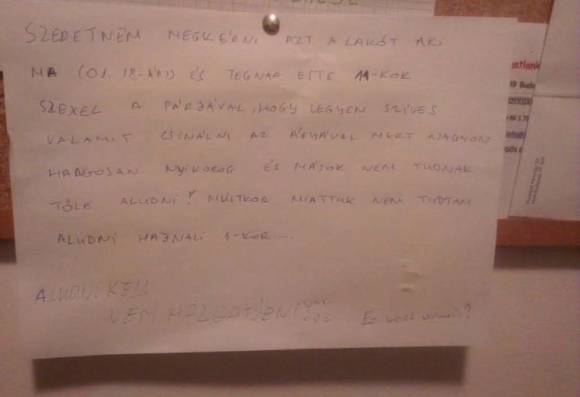 SZERETNÉM MEGKÉRNI AZT A LAKÓT AKI
MA (01. 18-ÁN) ÉS TEGNAP ESTE 11-KOR
SZEXEL A PÁRJÁVAL, HOGY LEGYEN SZÍVES
VALAMIT CSINÁLNI AZ ÁGYÁVAL MERT NAGYON
HANGOSAN NYIKOROG ÉS MÁSOK NEM TUDNAK
TŐLE ALUDNI! MÚLTKOR MIATTUK NEM TUDTAM
ALUDNI HAJNALI 1-KOR...
ALUDNI KELL
NEM HALGATÓZNI
Ez volt
atlank